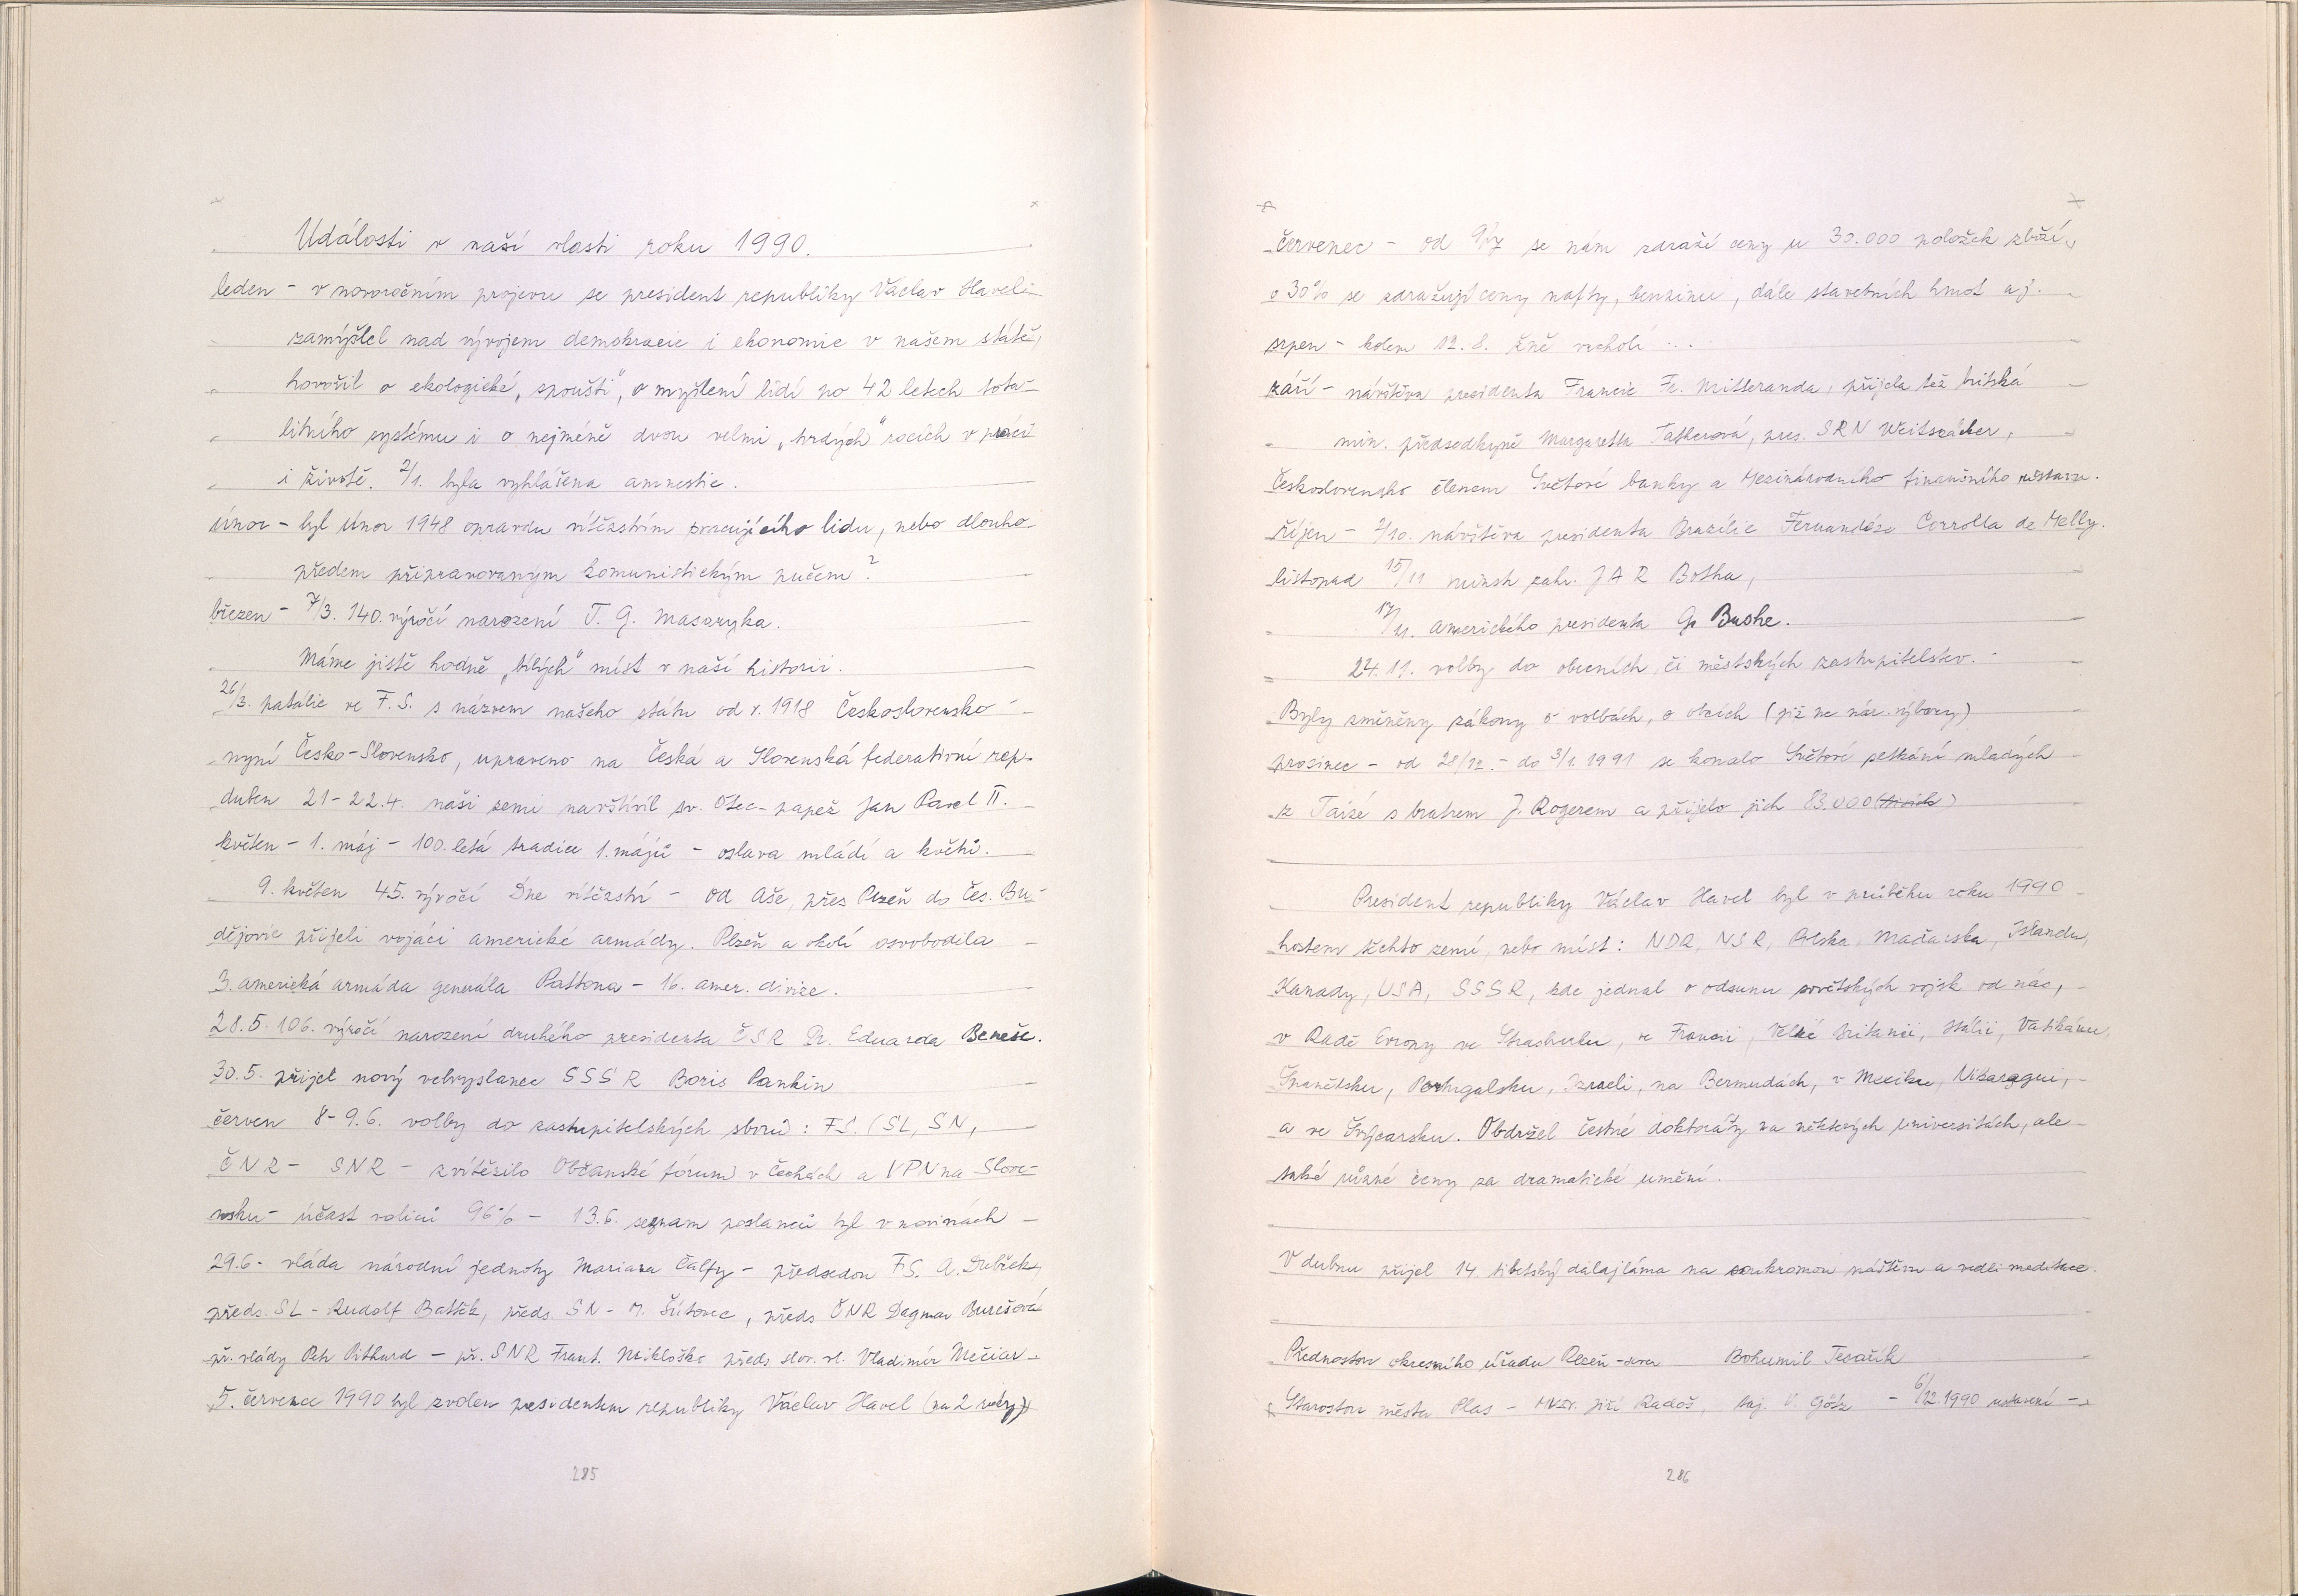 Události v naší vlasti roku 1990.
leden - v novoročním projevu se president republiky Václav Havel -
zamýšlel nad vývojem demokracie i ekonomie v našem státě,
hovořil o ekologické „spoušti", o myšlení lidí po 42 letech tota-
litního systému i o nejméně dvou velmi „tvrdých" rocích v práci
i životě. 2/1. byla vyhlášena amnestie.
únor - byl únor 1948 opravdu vítězstvím pracujícího lidu, nebo dlouho-
předem připravovaným komunistickým pučem?
březen - 7/3. 140. výročí narození T. G. Masaryka.
Máme jistě hodně „bílých" míst v naší historii.
26/3. patálie ve F.S. s názvem našeho státu od r. 1918 Československo -
nyní Česko-Slovensko, upraveno na Česká a Slovenská federativní rep.
duben 21-22.4. naši zemi navštívil sv. Otec - papež Jan Pavel II.
květen - 1. máj - 100. letá tradice 1. májů - oslava mládí a květů.
9. květen 45. výročí Dne vítězství - od Aše, přes Plzeň do Čes. Bu-
dějovic přijeli vojáci americké armády. Plzeň a okolí osvobodila
3. americká armáda generála Pattona - 16. amer. divize.
28.5. 106. výročí narození druhého presidenta ČSR Dr. Eduarda Beneše.
30.5. přijel nový velvyslanec SSSR Boris Pankin
červen 8-9.6. volby do zastupitelských sborů: FS. (SL, SN,
ČNR - SNR - zvítězilo Občanské fórum v Čechách a VPN na Slove-
nsku - účast voličů 96% - 13.6. seznam poslanců byl v novinách -
29.6 - vláda národní jednoty Mariana Čalfy - předsedou FS. A. Dubček,
předs. SL - Rudolf Battěk, předs. SN - M. Šútovec, předs ČNR Dagmar Burešová
př. vlády Petr Pithard - př. SNR Frant. Mikloško předs slov. vl. Vladimír Mečiar -
5. července 1990 byl zvolen presidentem republiky Václav Havel (na 2 roky)
285
červenec - od 9/7 se nám zdraží ceny u 30.000 položek zboží,
o 30% se zdražují ceny nafty, benzinu, dále stavebních hmot aj.
srpen - kolem 12.8. žně vrcholí ...
září - návštěva presidenta Francie Fr. Mitteranda, přijela též britská
min. předsedkyně Margaretta Tatherová, pres. SRN Weitszäcker,
Československo členem Světové banky a Mezinárodního finančního ústavu.
říjen - 2/10. návštěva presidenta Brazílie Fernandése Corrolla de Melly.
listopad 15/11 ministr zahr. JAR Botha,
17/11. amerického presidenta G. Bushe.
24.11. volby do obecních, či městských zastupitelstev. -
Byly změněny zákony o volbách, o obcích (již ne nár. výbory)
prosinec - od 28/12. - do 3/1. 1991 se konalo Světové setkání mladých
z Taizé s bratrem J. Rogerem a přijelo jich 83.000 (tisích)
President republiky Václav Havel byl v průběhu roku 1990
hostem těchto zemí, nebo míst: NDR, NSR, Polska, Maďarska, Islandu,
Kanady, USA, SSSR, kde jednal o odsunu sovětských vojsk od nás,
v Radě Evropy ve Štrasburku, ve Francii, Velké Britanii, Itálii, Vatikánu,
Španělsku, Portugalsku, Izraeli, na Bermudách, v Mexiku, Nikaragui,
a ve Švýcarsku. Obdržel čestné doktoráty na některých universitách, ale
také různé ceny za dramatické umění.
V dubnu přijel 14. tibetský dalajláma na soukromou návštěvu a vedli meditace.
Přednostou okresního úřadu Plzeň-sever Bohumil Tesařík
Starostou města Plas - MVDr. Jiří Radoš, taj. V. Götz - 6/12.1990 ustavení -
286